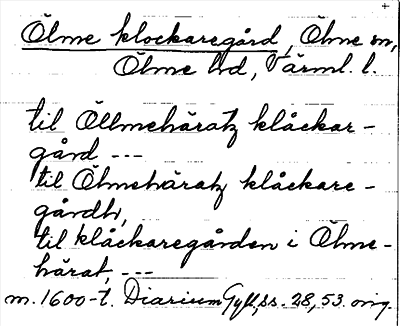 Ölme klockaregård, Ölme sn,
Ölme hd, Värml. l.
til Öllmehäratz klåckar-
gård ---
til Ölmehäratz klåckare-
gårdh,
til klåckaregården i Ölme-
härat, ---
m. 1600-t. Diarium Gyll, ss. 28, 53. orig.